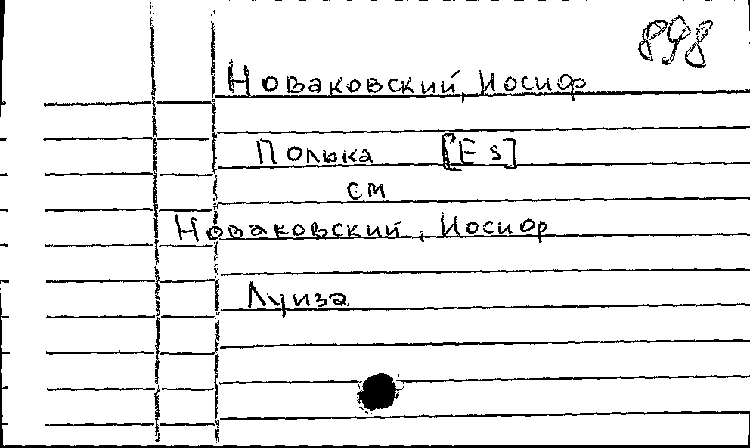 898
Новаковский, Иосиф
Полька [Es]
см
Новаковский, Иосиф
Луиза